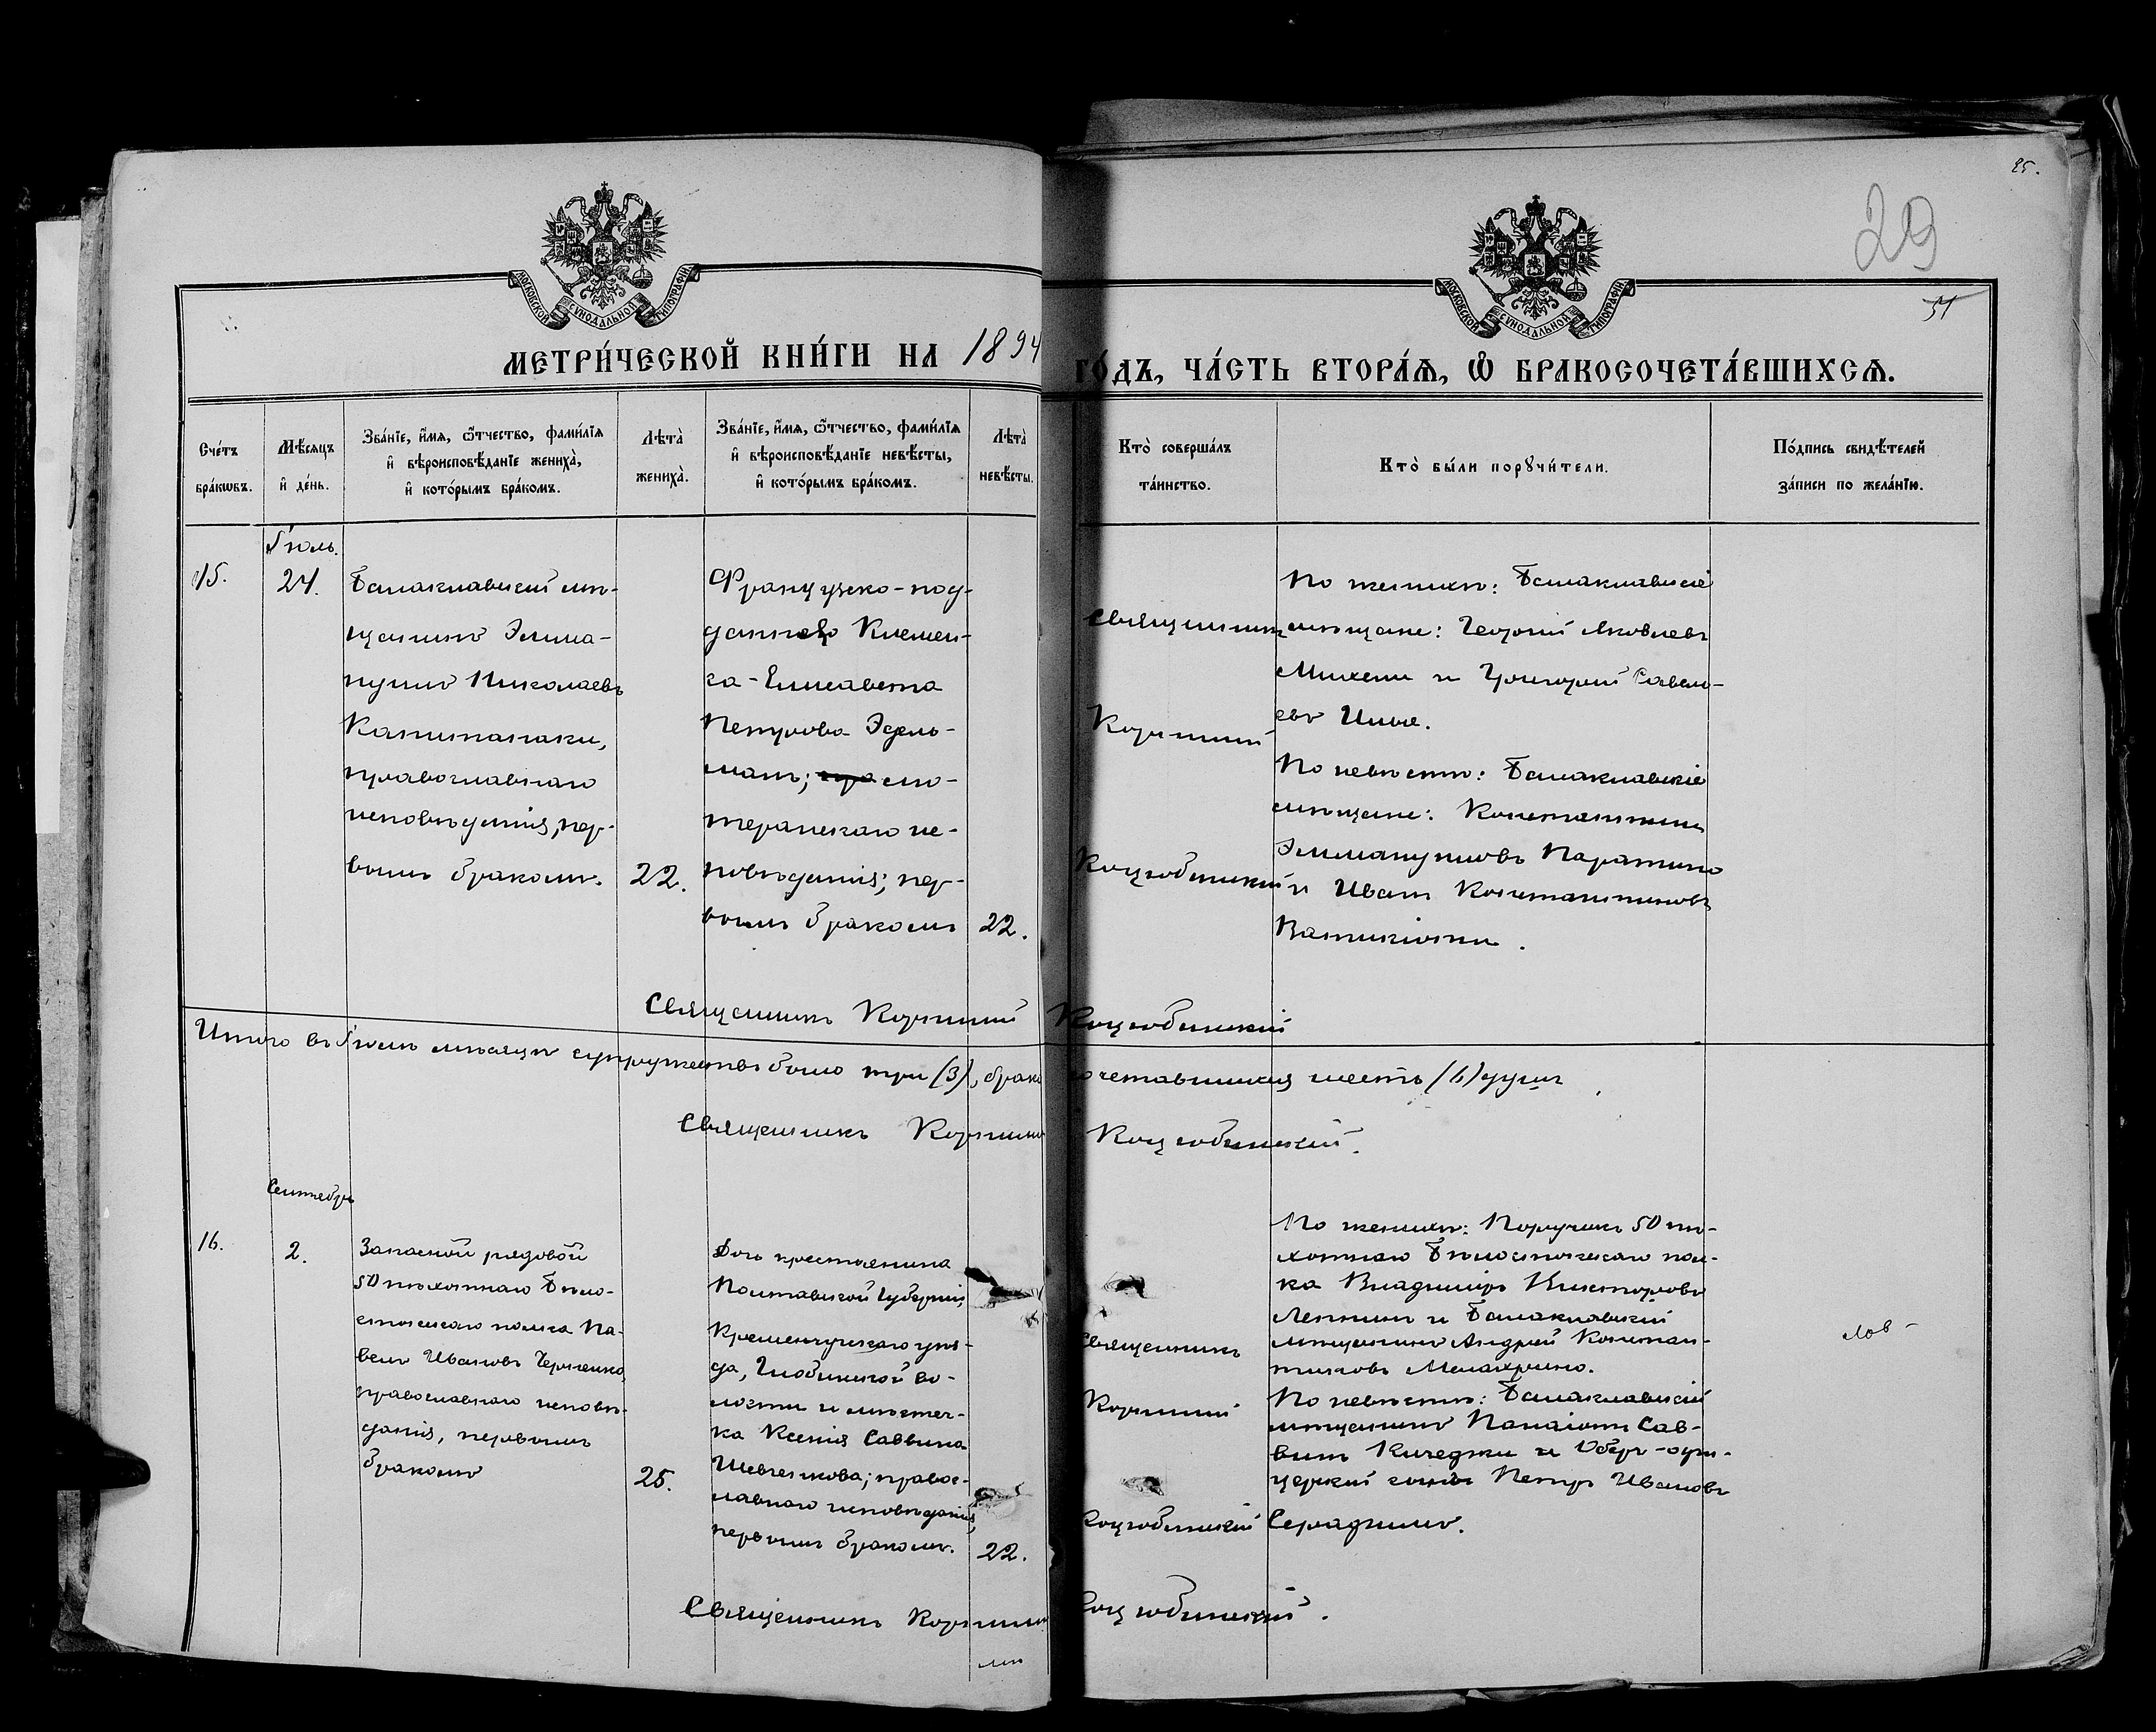 25.
29
МОСКОВСКОЙ СѴНОДАЛЬНОЙ ТИПОГРАФІИ
МОСКОВСКОЙ СѴНОДАЛЬНОЙ ТИПОГРАФІИ
МЕТРИ́ЧЕСКОЙ КНИ́ГИ НА 1894
ГО́ДЪ, ЧА́СТЬ ВТОРА́Ѧ, Ѽ БРАКОСОЧЕТА́ВШИХСѦ.
Сче́тъ
бра́кѡвъ.
Мѣ́сяцъ
и҆ де́нь.
Зва́нїе, и҆́мѧ, ѻ҆́тчество, фами́лїѧ
и҆ вѣроисповѣ́данїе жениха̀,
и҆ кото́рымъ бра́комъ.
Лѣта̀
жениха̀.
Зва́нїе, и҆́мѧ, ѻ҆́тчество, фами́лїѧ
и҆ вѣроисповѣ́данїе невѣ́сты,
и҆ кото́рымъ бра́комъ.
Лѣта̀
невѣ́сты.
Кто̀ соверша́лъ
та́инство.
Кто̀ бы́ли порꙋчи́тели.
По́дпись свидѣ́телей
за́писи по жела́нїю.
Іюль.
15.
24.
Балаклавскій мѣ-
щанинъ Эмма-
нуилъ Николаевъ
Капитанаки,
православнаго
исповѣданія, пер-
вымъ бракомъ.
22.
Французско-под-
Клемен-
са-Елисавета
Петрова Эдель-
манъ; лю-
теранскаго ис-
повѣданія; пер-
вымъ бракомъ
22.
Священникъ
Корчинный
Коцюбинскій
По женихѣ: Балаклавскіе
мѣщане: Георгій Яковлевъ
и Григорій Савель-
евъ
По невѣстѣ: Балаклавскіе
мѣщане: Константинъ
Эммануиловъ Паратино
и Иванъ Константиновъ
Священникъ Коцюбинскій
Итого въ Іюлѣ мѣсяцѣ супружествъ было три (3), брако
сочетавшихся шесть (6) душъ
Священникъ Коцюбинскій.
Сентябрь
16.
2.
Запасной рядовой
50 пѣхотнаго Бѣло-
стокскаго полка Па-
велъ Ивановъ
православнаго исповѣ-
данія, первымъ
бракомъ
25.
Дочь крестьянина
Полтавской Губерніи,
Кременчугскаго уѣз-
да, Глобинской во-
лости и мѣстеч-
ка Ксенія Саввина
Шевченкова; правос-
лавнаго исповѣданія,
первымъ бракомъ.
22.
Священникъ
Коцюбинскій
По женихѣ: Поручикъ 50 пѣ-
хотнаго Бѣлостокскаго пол-
ка Владиміръ Викторовъ
и Балаклавскій
мѣщанинъ Андрей Констан-
тиновъ Мелахрино.
По невѣстѣ: Балаклавскій
мѣщанинъ Панаіотъ Сав-
винъ Кичеджи и Оберъ-офи-
церскій сынъ Петръ Ивановъ
Священникъ Коцюбинскій.